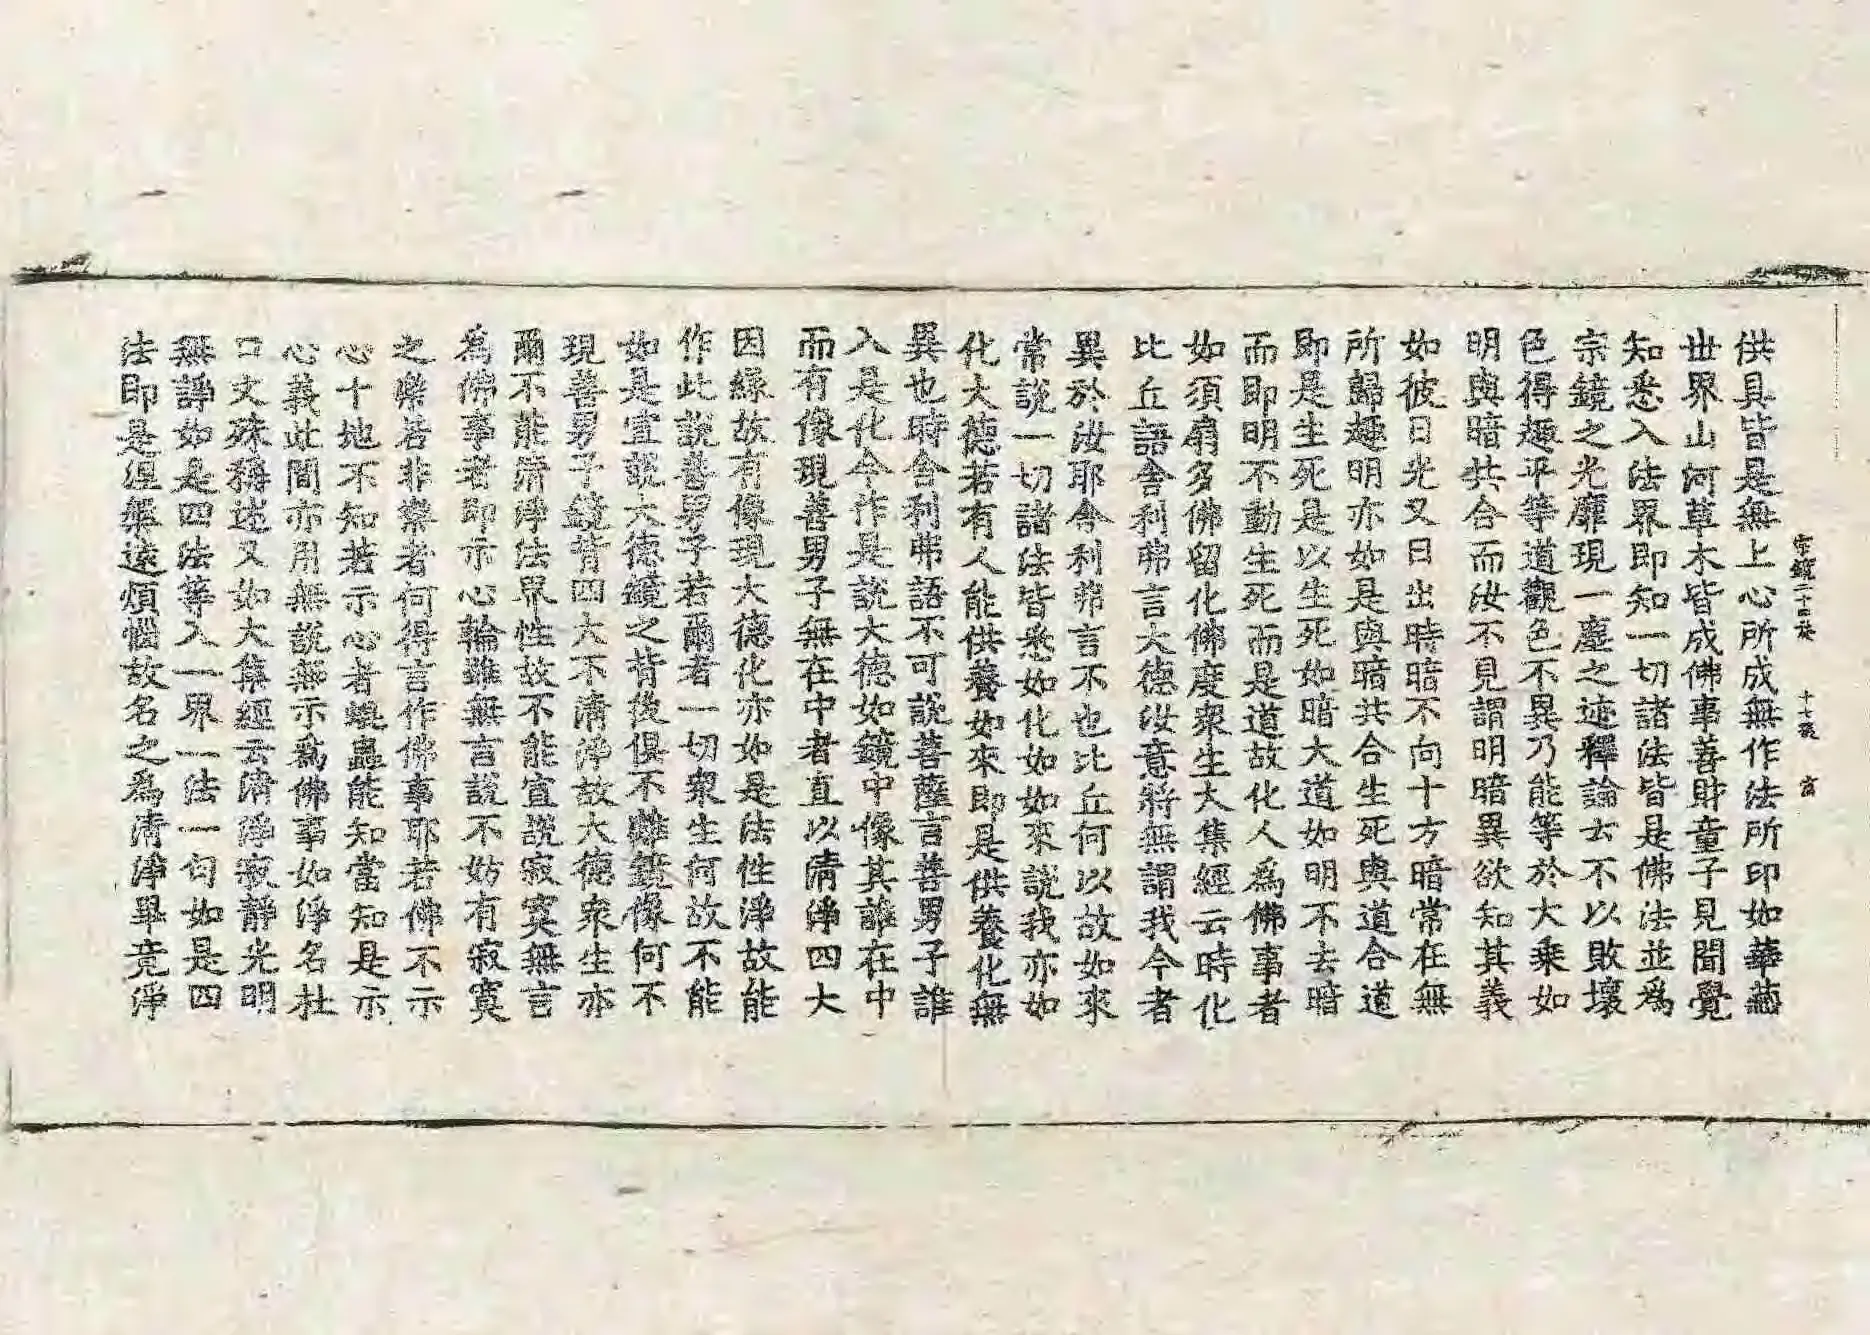 宗鏡二十三卷 十七張 富
供具皆是無上心所成無作法所印如華藏
世界山河草木皆成佛事善財童子見聞覺
知悉入法界即知一切諸法皆是佛法並爲
宗鏡之光靡現一塵之迹釋論云不以敗壞
色得趣平等道觀色不異乃能等於大乘如
明與暗共合而汝不見謂明暗異欲知其義
如彼日光又日出時暗不向十方暗常在無
所歸趣明亦如是與暗共合生死與道合道
即是生死是以生死如暗大道如明不去暗
而即明不動生死而是道故化人爲佛事者
如須扇多佛留化佛度衆生大集經云時化
比丘語舍利弗言大德汝意將無謂我今者
異於汝耶舍利弗言不也比丘何以故如來
常說一切諸法皆悉如化如如來說我亦如
化大德若有人能供養如來即是供養化無
異也時舍利弗語不可說菩薩言善男子誰
入是化今作是說大德如鏡中像其誰在中
而有像現善男子無在中者直以清淨四大
因緣故有像現大德化亦如是法性淨故能
作此說善男子若爾者一切衆生何故不能
如是宣說大德鏡之背後俱不離鏡像何不
現善男子鏡背四大不清淨故大德衆生亦
爾不能清淨法界性故不能宣說寂寞無言
為佛事者即示心輪雖無言說不妨有寂寞
之樂若非樂者何得言作佛事耶若佛不示
心十地不知若示心者蜫蟲能知當知是示
心義此間亦用無說無示爲佛事如淨名杜
口文殊稱述又如大集經云清淨寂靜光明
無諍如是四法等入一界一法一句如是四
法即是涅槃遠煩惱故名之爲清淨畢竟淨